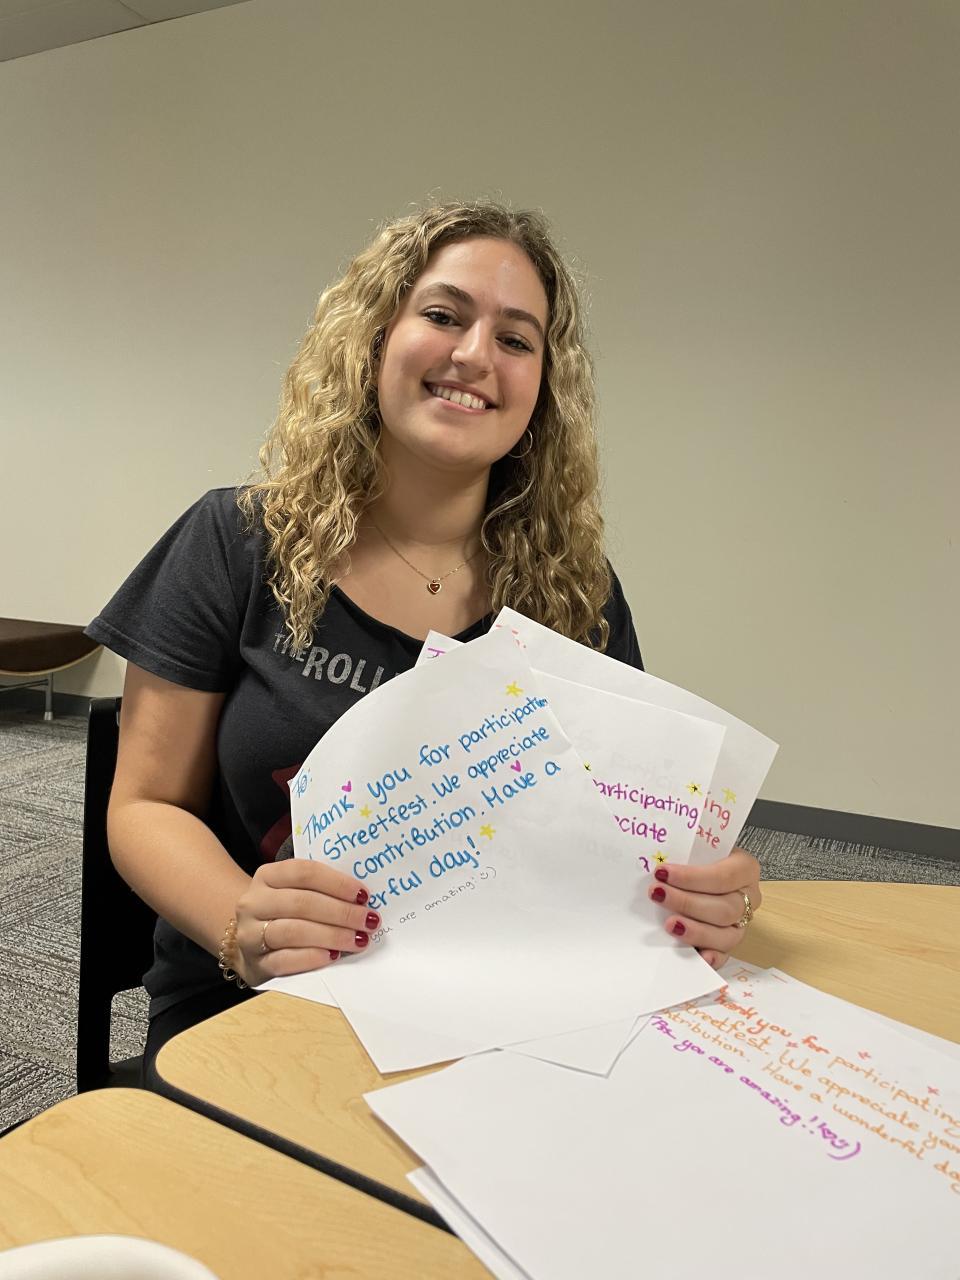 THE ROLLI
To:
Thank you for participatin
Streetfest. We appreciate
contribution. Have a
erful day!
you are amazing! :)
articipating
ciate
ing
ate
To:
Thank you for participating
Streetfest. We appreciate your
ntribution. Have a wonderful day
you are amazing!!